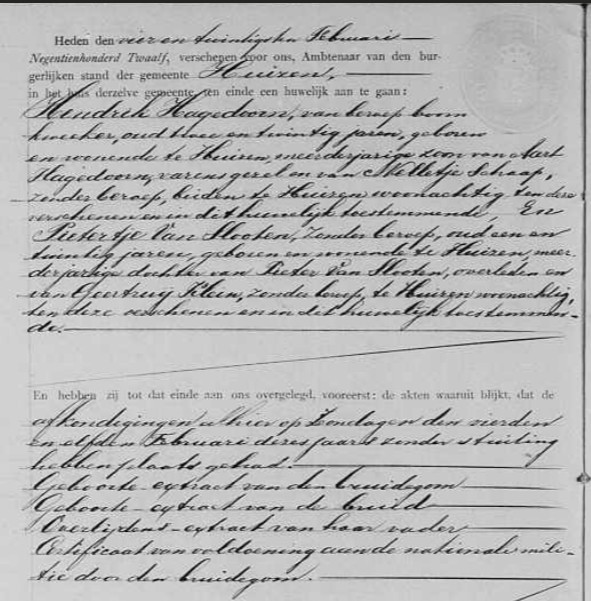 Heden den vier en twintigsten Februari
Negentienhonderd Twaalf, verschenen voor ons, Ambtenaar van den bur-
gerlijken stand der gemeente Huizen,
in het huis derzelve gemeente, ten einde een huwelijk aan te gaan:
Hendrik Hagedoorn, van beroep boom
kweeker, oud twee en twintig jaren, geboren
en wonende te Huizen, meerderjarige zoon van Aart
Hagedoorn, varensgezel en van Melletje Schaap,
zonder beroep, beiden te Huizen woonachtig ten deze
verschenen en in dit huwelijk toestemmende, En
Pietertje Van Slooten, zonder beroep, oud een en
twintig jaren, geboren en wonende te Huizen, meer-
derjarige dochter van Pieter Van Slooten, overleden en
van Geertruij Klein, zonder beroep, te Huizen woonachtig,
ten deze verschenen en in dit huwelijk toestemmen-
de.
En hebben zij tot dat einde aan ons overgelegd, vooreerst: de akten waaruit blijkt, dat de
afkondigingen alhier op Zondagen den vierden
en elfden Februari dezes jaars zonder stuiting
hebben plaats gehad.
Geboorte-extract van den bruidegom
Geboorte-extract van de bruid
Overlijdens-extract van haar vader
Certificaat van voldoening aan de nationale mili-
tie door den bruidegom.